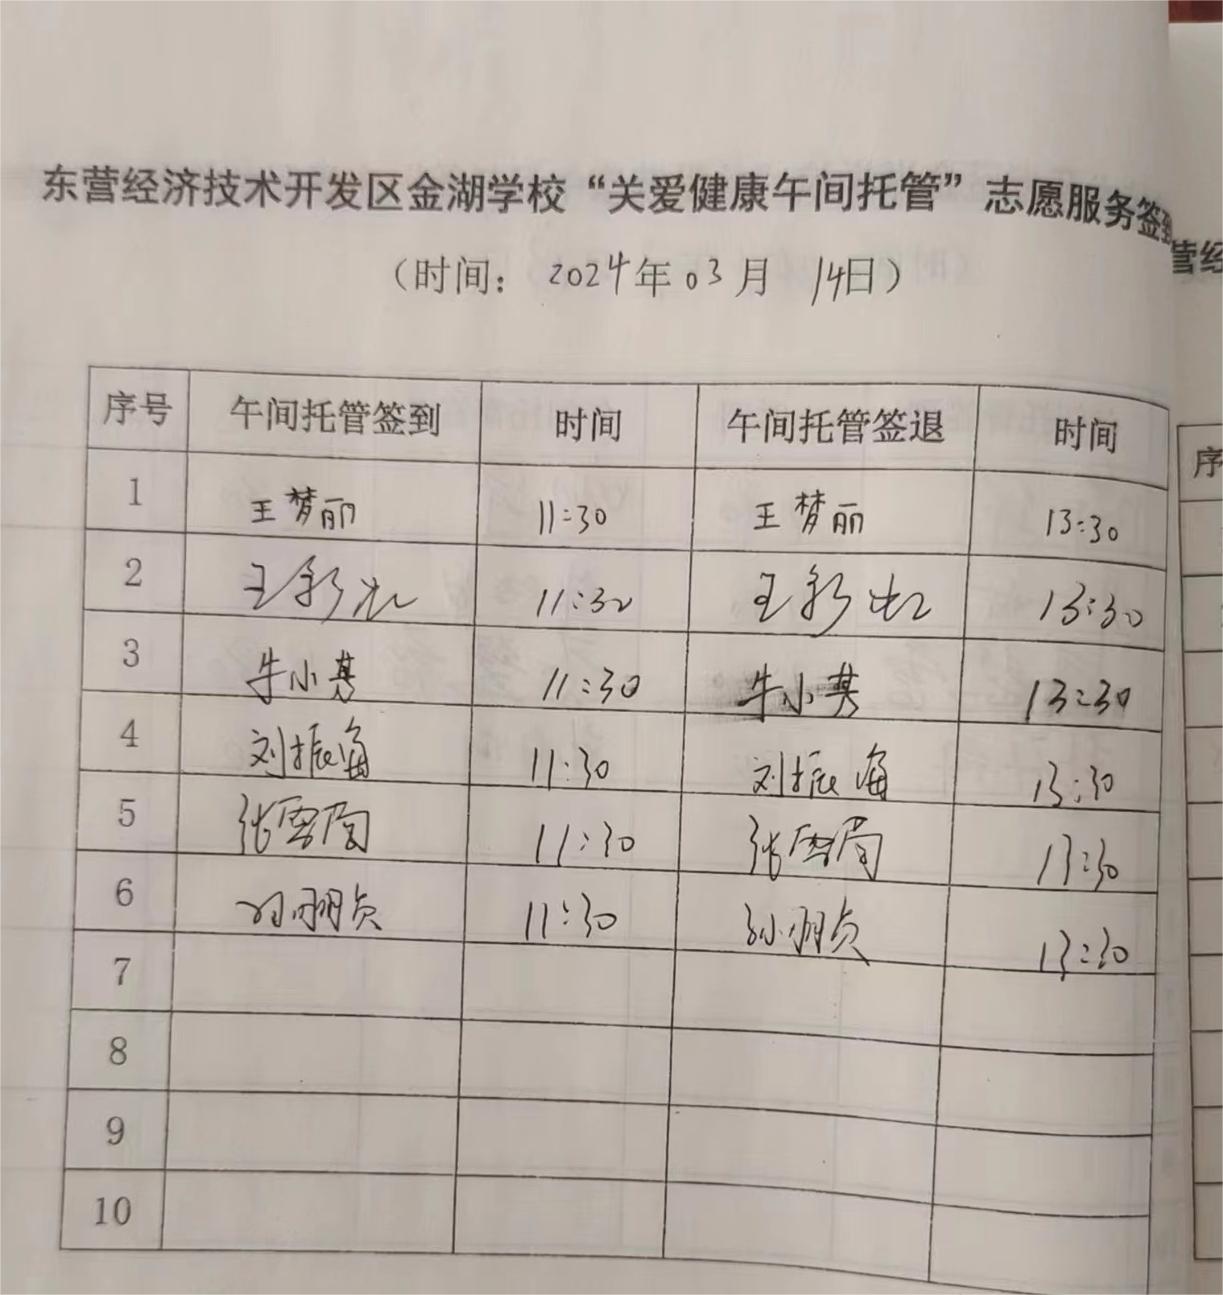 东营经济技术开发区金湖学校“关爱健康午间托管”志愿服务签到
（时间：2024年03月14日）
序号 午间托管签到 时间 午间托管签退 时间
1 王梦丽 11:30 王梦丽 13:30
2 王彩虹 11:30 王彩虹 13:30
3 牛小其 11:30 牛小其 13:30
4 刘振海 11:30 刘振海 13:30
5 张雪 11:30 张雪 13:30
6 孙朋贞 11:30 孙朋贞 13:30
7
8
9
10
营经
序